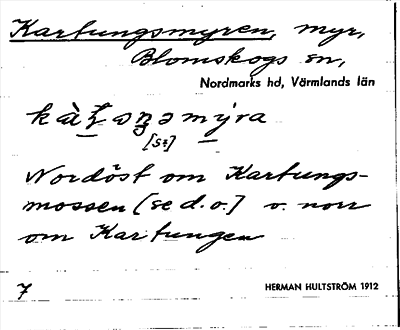 Kartungsmyren, myr,
Blomskogs sn,
Nordmarks hd, Värmlands län
[s:]
Nordöst om Kartungs-
mossen [se d.o.] o. norr
om Kartungen
7
HERMAN HULTSTRÖM 1912